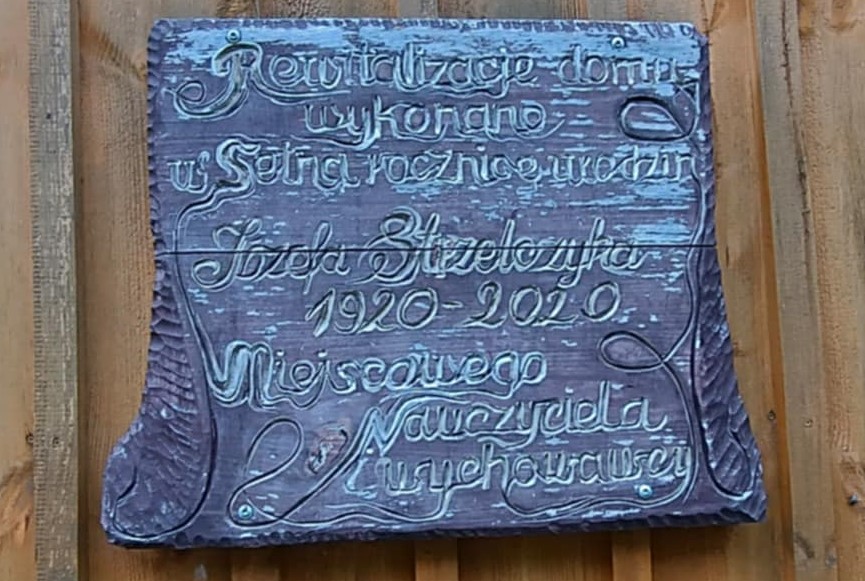 Rewitalizację domu
wykonano
w Setną rocznicę urodzin
Józefa Strzelczyka
1920-2020
Miejscowego
Nauczyciela
i wychowawcy